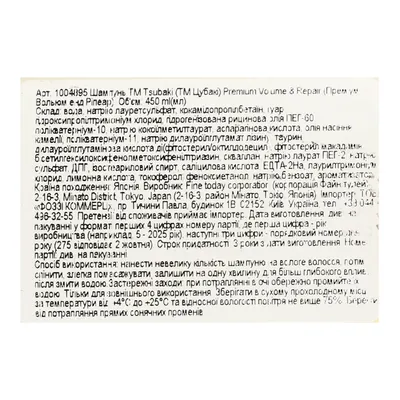 Арт. 1004895 Шампунь ТМ Tsubaki (ТМ Цубакі) Premium Volume & Repair (Преміум
Вольюм енд Ріпеар) Об'єм: 450 ml(мл)
Склад: вода, натрію лауретсульфат, кокамідопропілбетаїн, гуар
гідроксипропілтримоній хлорид, гідрогенізована рицинова олія ПЕГ-60
полікватерніум-10, натрію кокоїлметилтаурат, аспарагінова кислота, олія насіння
камелії, полікватерніум-11, натрію динатрій, таурин,
дилауроїлглутамінова кислота ді(фітостерил/октилдодецил,
натрію лаурат ПЕГ-2 натрію
сульфат, ДПГ, ізостеариловий спирт, саліцилова кислота ЕДТА-2На, лаурилтримоній
хлорид, лимонна кислота, токоферол, феноксіетанол, натрію бензоат, ароматизатор.
Країна походження: Японія. Виробник: Fine today corporation (корпорація Файн Тудей),
2-16-3, Minato District, Tokyo, Japan (2-16-3, район Мінато Токіо, Японія) Імпортер: ТОВ
«ФОЗЗІ КОММЕРЦ», пр. Тичини Павла, будинок 1В С2152 Київ Україна тел
496-32-55. Претензії від споживачів приймає імпортер. Дата виготовлення:
пакуванні у форматі перших 4 цифрах номеру партії, де перша цифра - рік
виробництва (наприклад, 5 - 2025 рік) три наступних - порядковий номер
(275 відповідає 2 жовтня). Строк придатності: 3 роки з дати виготовлення. Номер
партії: див. на пакуванні.
Спосіб використання: нанести невелику кількість шампуню на вологе волосся, потім
спінити, злегка помасажувати, залишити на одну хвилину для більш глибокого
після змити водою. Застережні заходи: при потраплянні в очі обережно промийте їх
водою. Тільки для зовнішнього використання. Зберігати в сухому прохолодному місці
за температури від +4°C до +25°C та відносної вологості повітря не вище 75%. Берегти
від потрапляння прямих сонячних променів.